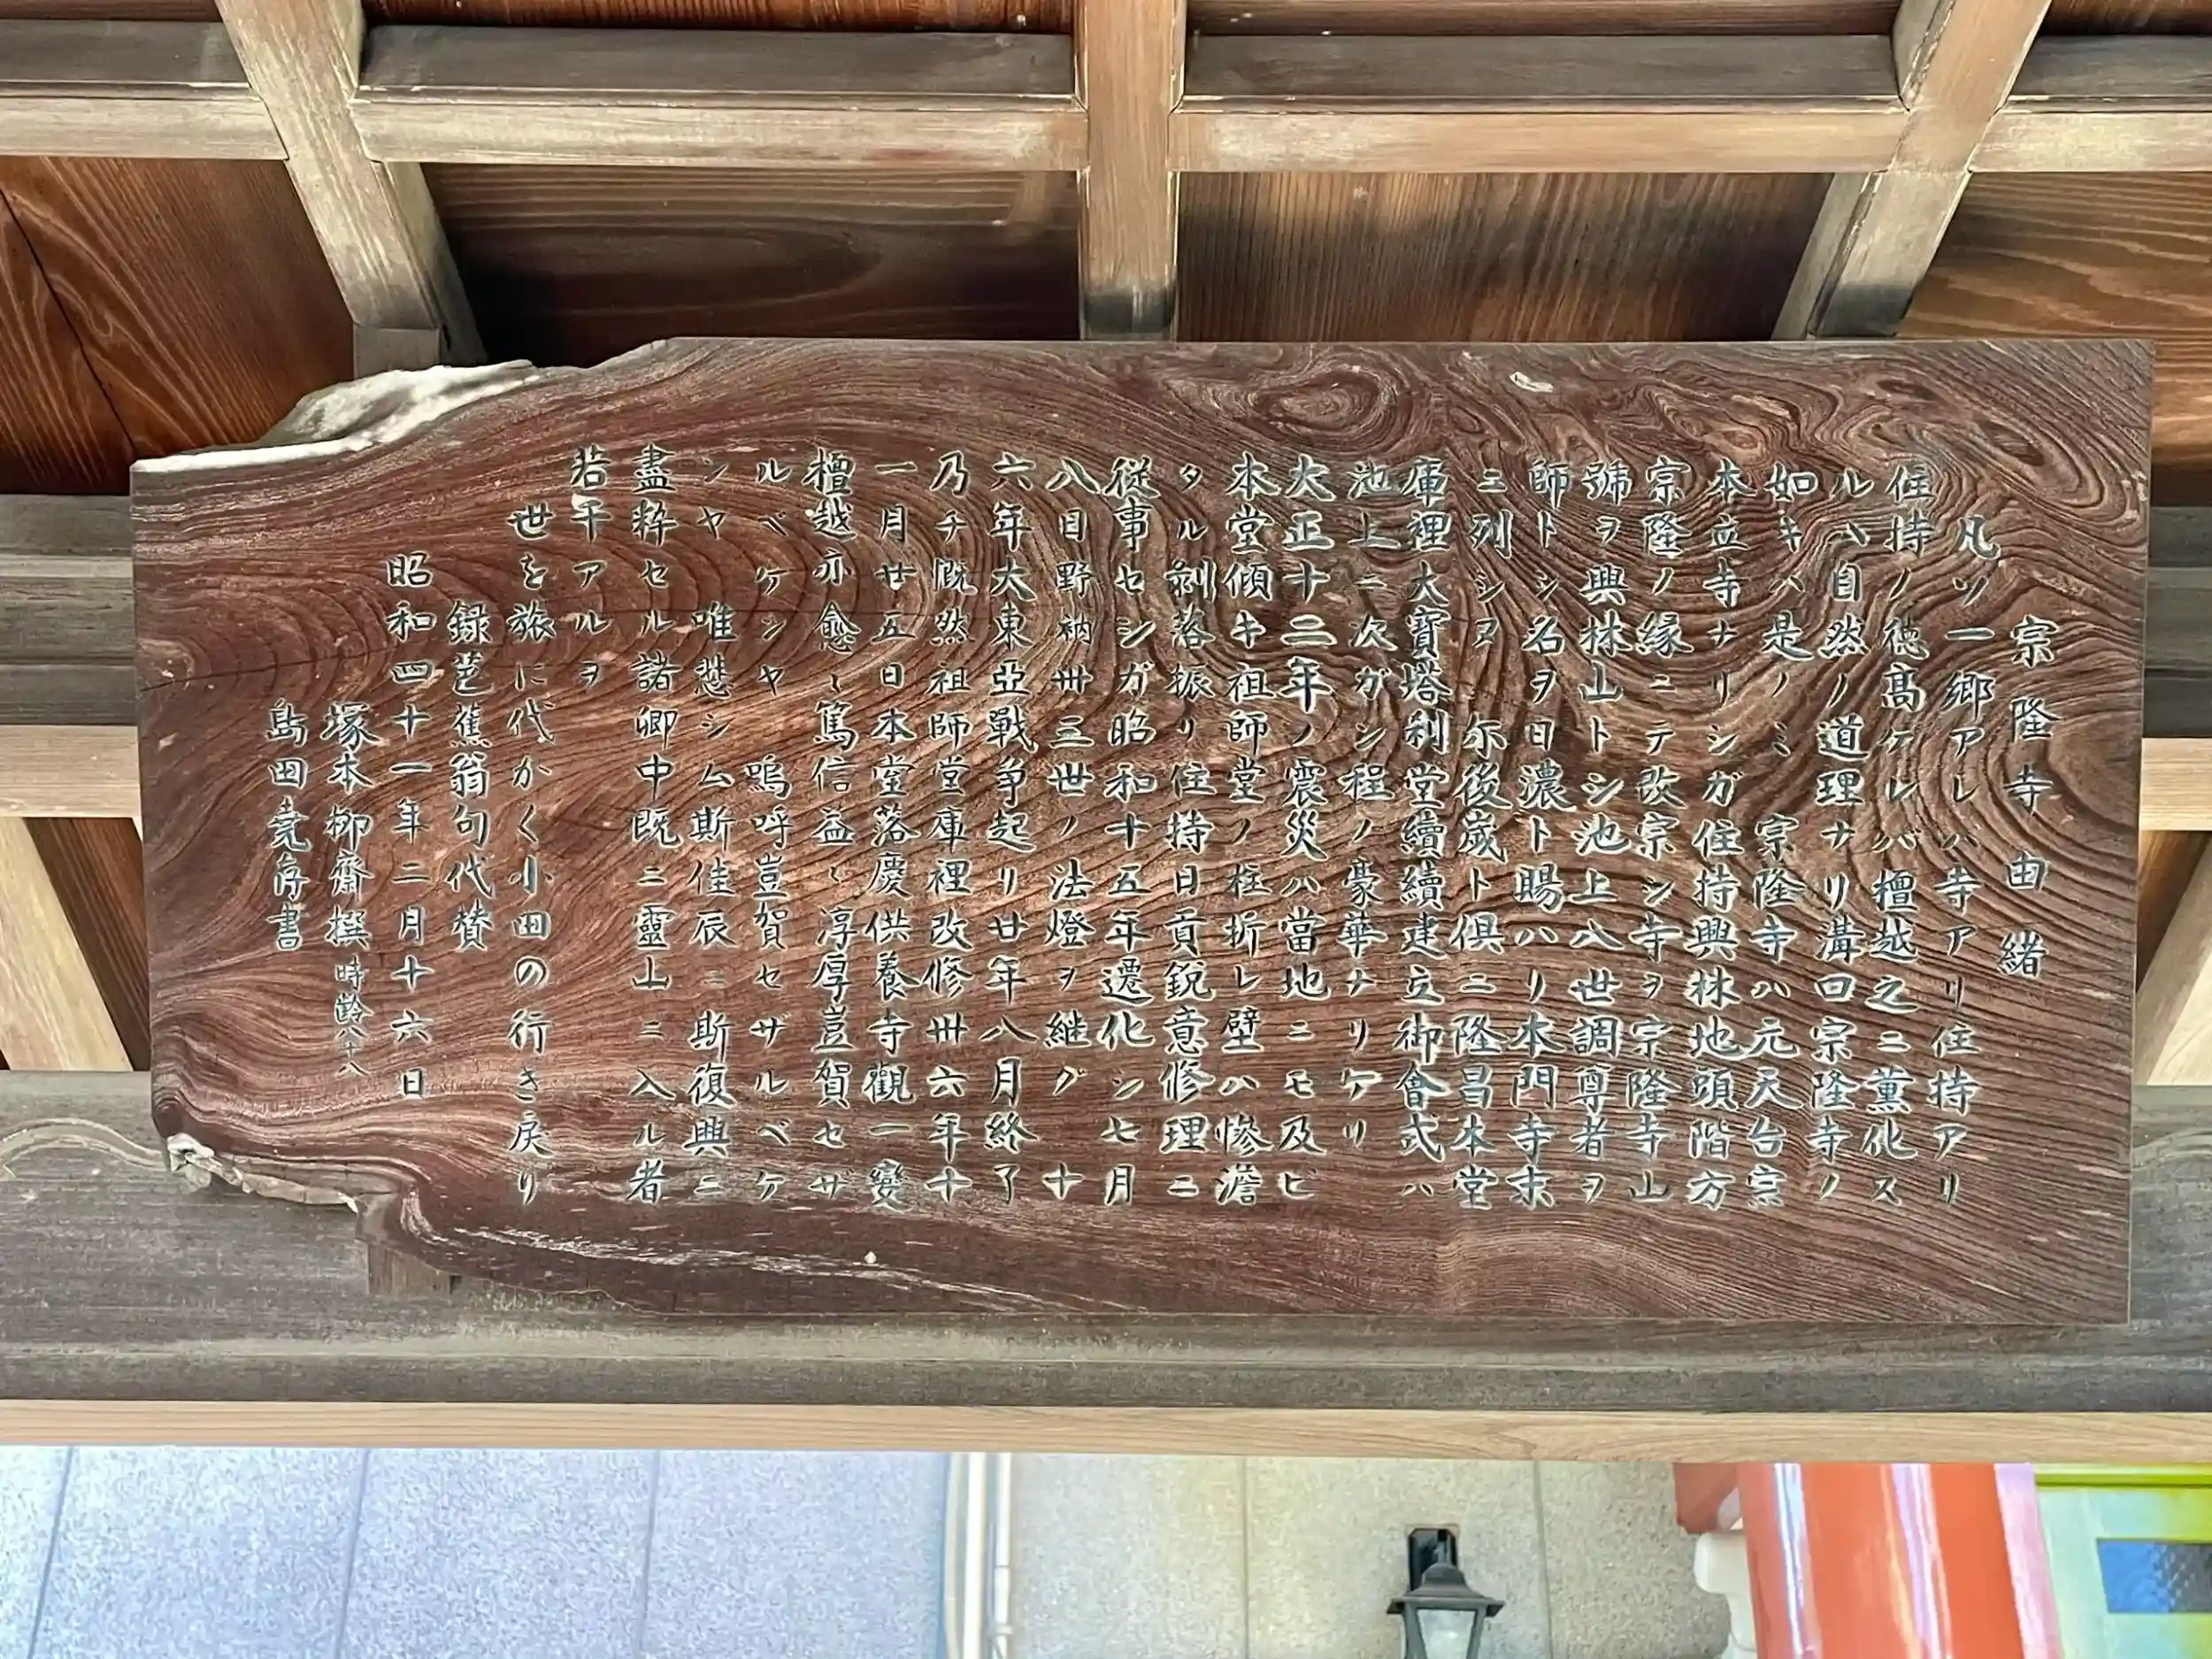 宗隆寺由緒
凡ソ一郷アレハ寺アリ住持アリ
住持ノ徳髙ケレバ檀越之ニ薫化ス
ルハ自然ノ道理ナリ溝口宗隆寺ノ
如キハ是ノミ 宗隆寺ハ元天台宗
本立寺ナリシガ住持興林地頭階方
宗隆ノ縁ニテ改宗シ寺ヲ宗隆寺山
號ヲ興林山トシ池上八世調尊者ヲ
師トシ名ヲ日濃ト賜ハリ本門寺末
ニ列シヌ 尓後歳ト倶ニ隆昌本堂
庫裡大寶塔利堂續續建立御會式ハ
池上ニ次ガン程ノ豪華ナリケリ
大正十二年ノ震災ハ當地ニモ及ビ
本堂傾キ祖師堂ノ柱折レ壁ハ惨澹
タル剝落振リ住持日貢鋭意修理ニ
従事セシガ昭和十五年遷化シ七月
八日野衲丗三世ノ法燈ヲ継グ 十
六年大東亞戰争起リ廿年八月終了
乃チ慨然祖師堂庫裡改修丗六年十
一月廿五日本堂落慶供養寺觀一變
檀越亦愈〻篤信益〻淳厚豈賀セザ
ルベケンヤ 嗚呼豈賀セザルベケ
ンヤ 唯愁シム斯佳辰ニ斯復興ニ
盡粋セル諸卿中既ニ靈山ニ入ル者
若干アルヲ
世を旅に代かく小田の行き戻り
録芭蕉翁句代賛
昭和四十一年二月十六日
塚本柳齋撰 時齢八十八
島田堯存書